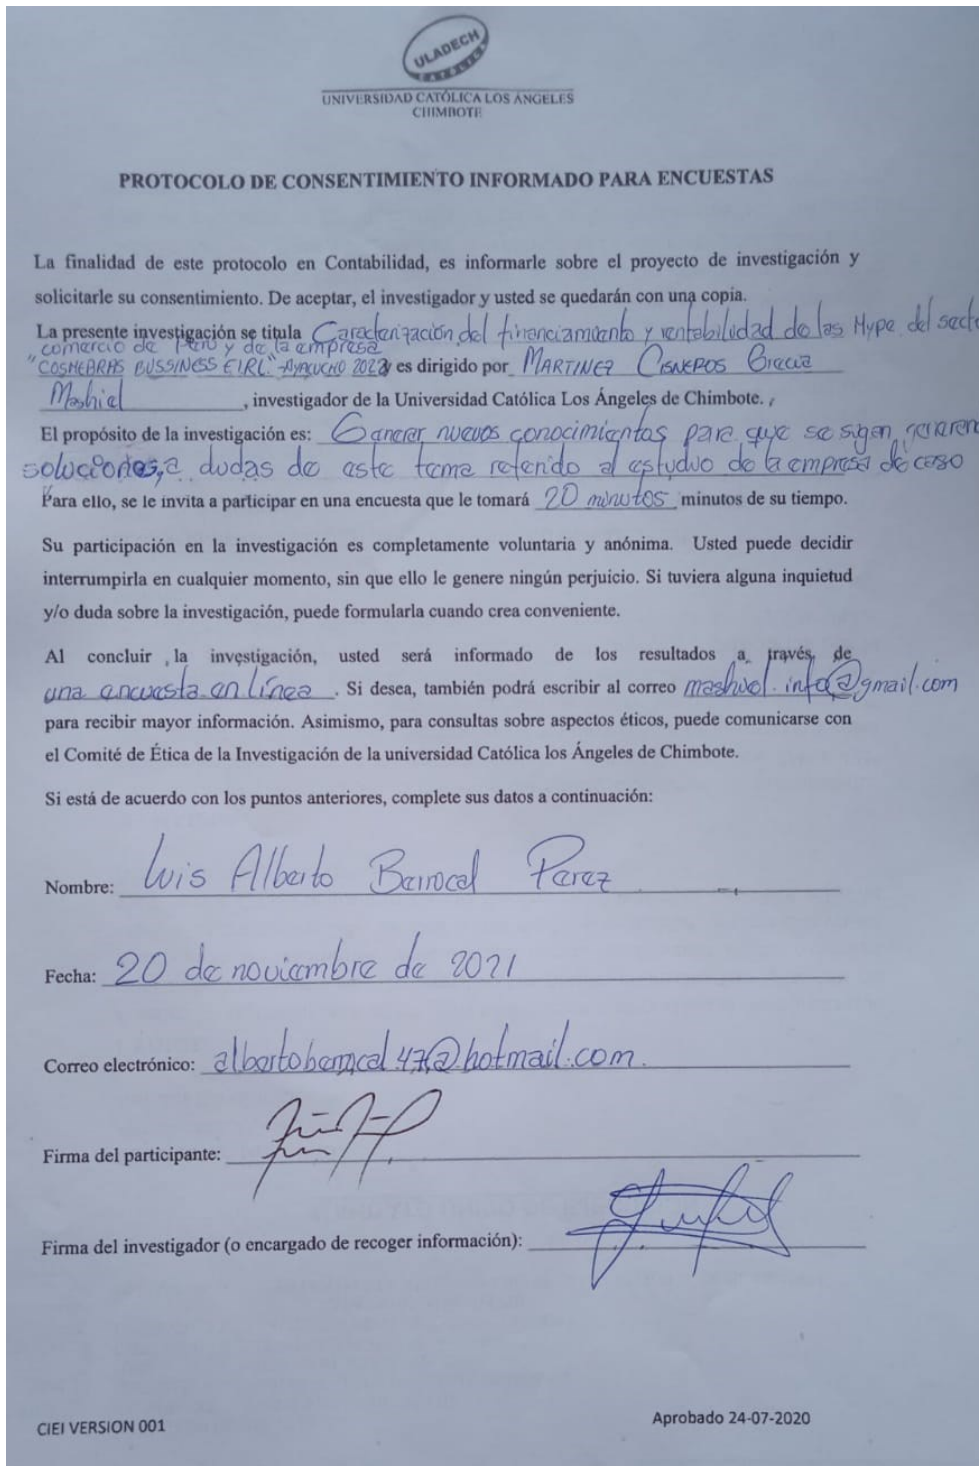 ULADECH
CATÓLICA
UNIVERSIDAD CATÓLICA LOS ÁNGELES
CHIMBOTE
PROTOCOLO DE CONSENTIMIENTO INFORMADO PARA ENCUESTAS
La finalidad de este protocolo en Contabilidad, es informarle sobre el proyecto de investigación y
solicitarle su consentimiento. De aceptar, el investigador y usted se quedarán con una copia.
La presente investigación se titula Caracterización del financiamiento y rentabilidad de las Mype del secto
comercio de Perú y de la empresa
"COSMEBRAS BUSSINESS E.I.R.L." - AYACUCHO 2022 y es dirigido por MARTINEZ CISNEROS Grecia
Mashiel, investigador de la Universidad Católica Los Ángeles de Chimbote.
El propósito de la investigación es: Generar nuevos conocimientos para que se sigan generand
soluciones a dudas de este tema referido al estudio de la empresa de caso
Para ello, se le invita a participar en una encuesta que le tomará 20 minutos minutos de su tiempo.
Su participación en la investigación es completamente voluntaria y anónima. Usted puede decidir
interrumpirla en cualquier momento, sin que ello le genere ningún perjuicio. Si tuviera alguna inquietud
y/o duda sobre la investigación, puede formularla cuando crea conveniente.
Al concluir la investigación, usted será informado de los resultados a través de
una encuesta en línea. Si desea, también podrá escribir al correo mashiel.info@gmail.com
para recibir mayor información. Asimismo, para consultas sobre aspectos éticos, puede comunicarse con
el Comité de Ética de la Investigación de la universidad Católica los Ángeles de Chimbote.
Si está de acuerdo con los puntos anteriores, complete sus datos a continuación:
Nombre: Luis Alberto Berrocal Perez
Fecha: 20 de noviembre de 2021
Correo electrónico: albertoberrocal47@hotmail.com.
Firma del participante:
Firma del investigador (o encargado de recoger información):
CIEI VERSION 001
Aprobado 24-07-2020